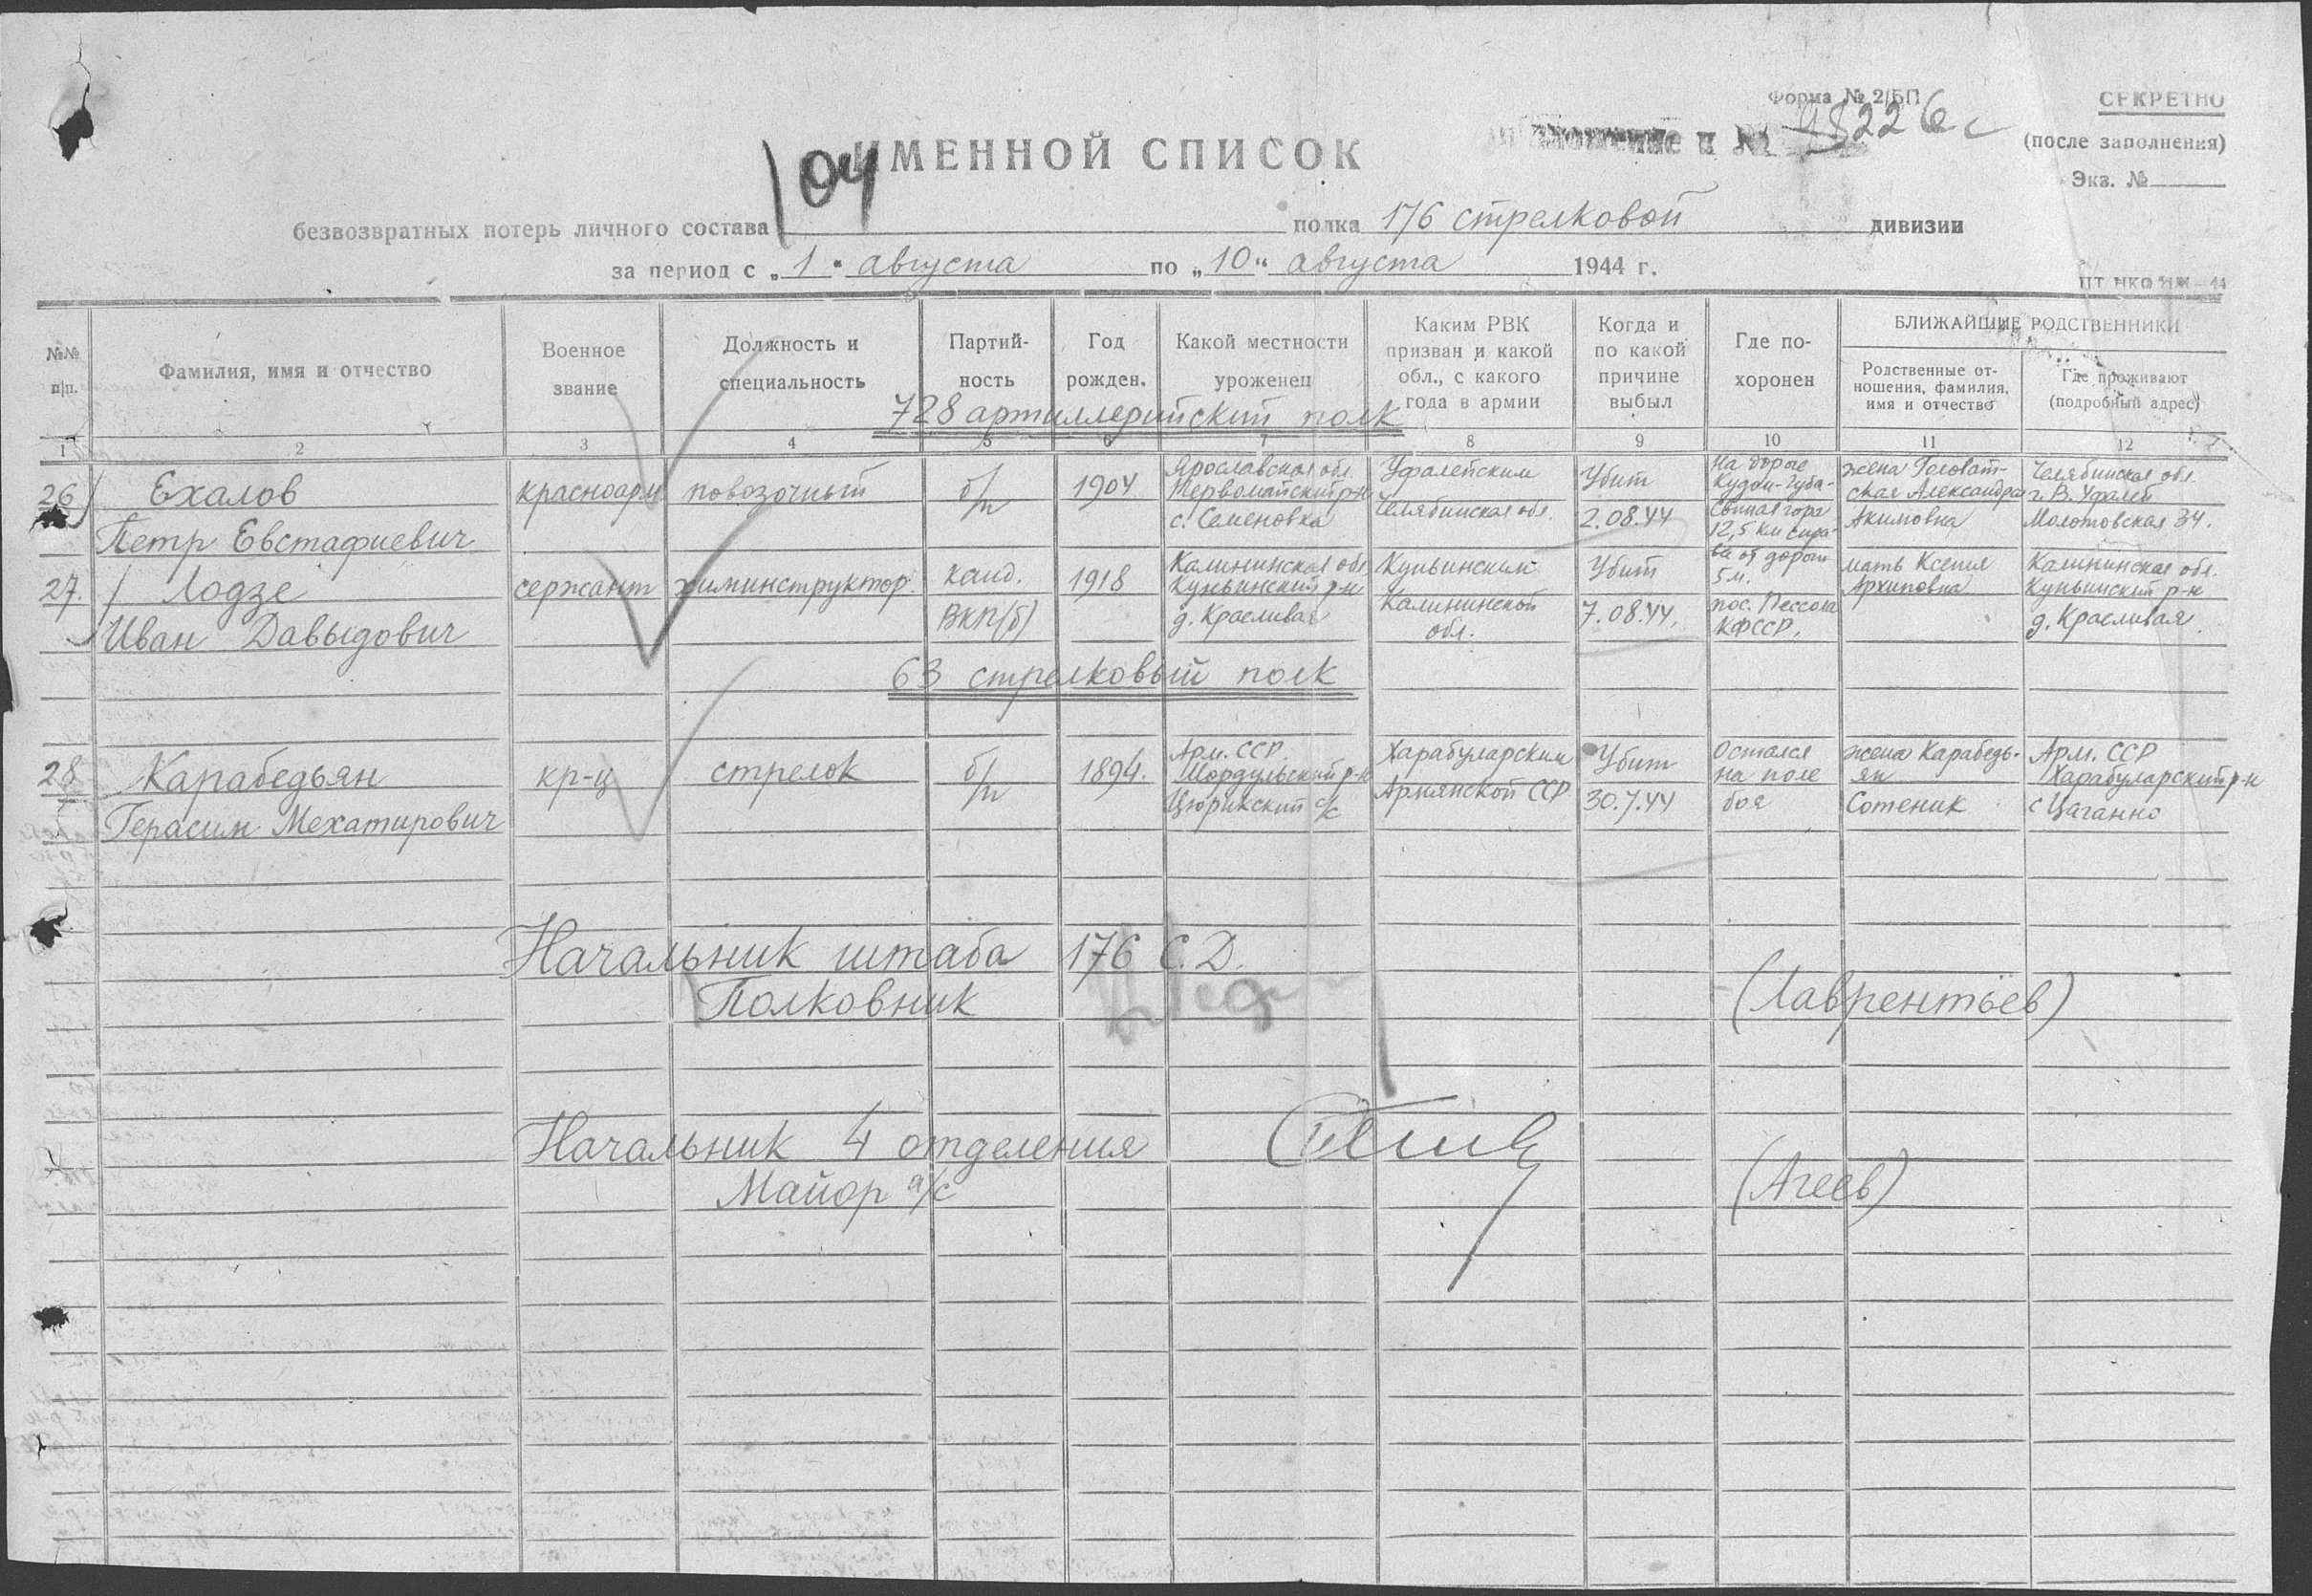 Форма № 2/БП
СЕКРЕТНО
(после заполнения)
Экз. №
104
ИМЕННОЙ СПИСОК
безвозвратных потерь личного состава полка 176 стрелковой дивизии
за период с „ 1 " августа по „ 10 " августа 1944 г.
№№ п/п.
Фамилия, имя и отчество
Военное звание
Должность и специальность
Партий-
ность
Год рожден.
Какой местности уроженец
Каким РВК
призван и какой
обл., с какого
года в армии
Когда и
по какой
причине
выбыл
Где по-
хоронен
БЛИЖАЙШИЕ РОДСТВЕННИКИ
Родственные от-
ношения, фамилия,
имя и отчество
Где проживают
(подробный адрес)
728 артиллерийский полк
1 2 3 4 5 6 7 8 9 10 11 12
26
Ехалов
Петр Евстафиевич
красноарм
повозочный
б/п
1904
Ярославская обл.
Первомайский р-н
с. Семеновка
Уфалейским
Челябинская обл.
Убит
2.08.44
На дороге
Кудом-Губа-
Свиная гора
12,5 км спра-
ва от дороги
5 м.
жена Головат-
ская Александра
Акимовна
Челябинская обл.
г. В. Уфалей
Молотовская 34.
27.
Лодзе
Иван Давыдович
сержант
химинструктор.
канд.
ВКП(б)
1918
Калининская обл
Куньинский р-н
д. Красливая
Куньинским
Калининской
обл.
Убит
7.08.44.
пос. Пессола
КФССР.
мать Ксения
Архиповна
Калининская обл.
Куньинский р-н
д. Красливая.
63 стрелковый полк
28
Карабедьян
Герасим Мехатирович
кр-ц
стрелок
б/п
1894.
Арм. ССР.
Шордульский р-н
Цюрикский с/с
Харабуларским
Армянской ССР
Убит
30.7.44
Остался
на поле
боя
жена Карабедь-
ян
Сотеник
Арм. ССР
Харабуларский р-н
с Цаганно
Начальник штаба 176 С.Д.
Полковник
(Лаврентьев)
Начальник 4 отделения
Майор а/с
(Агеев)